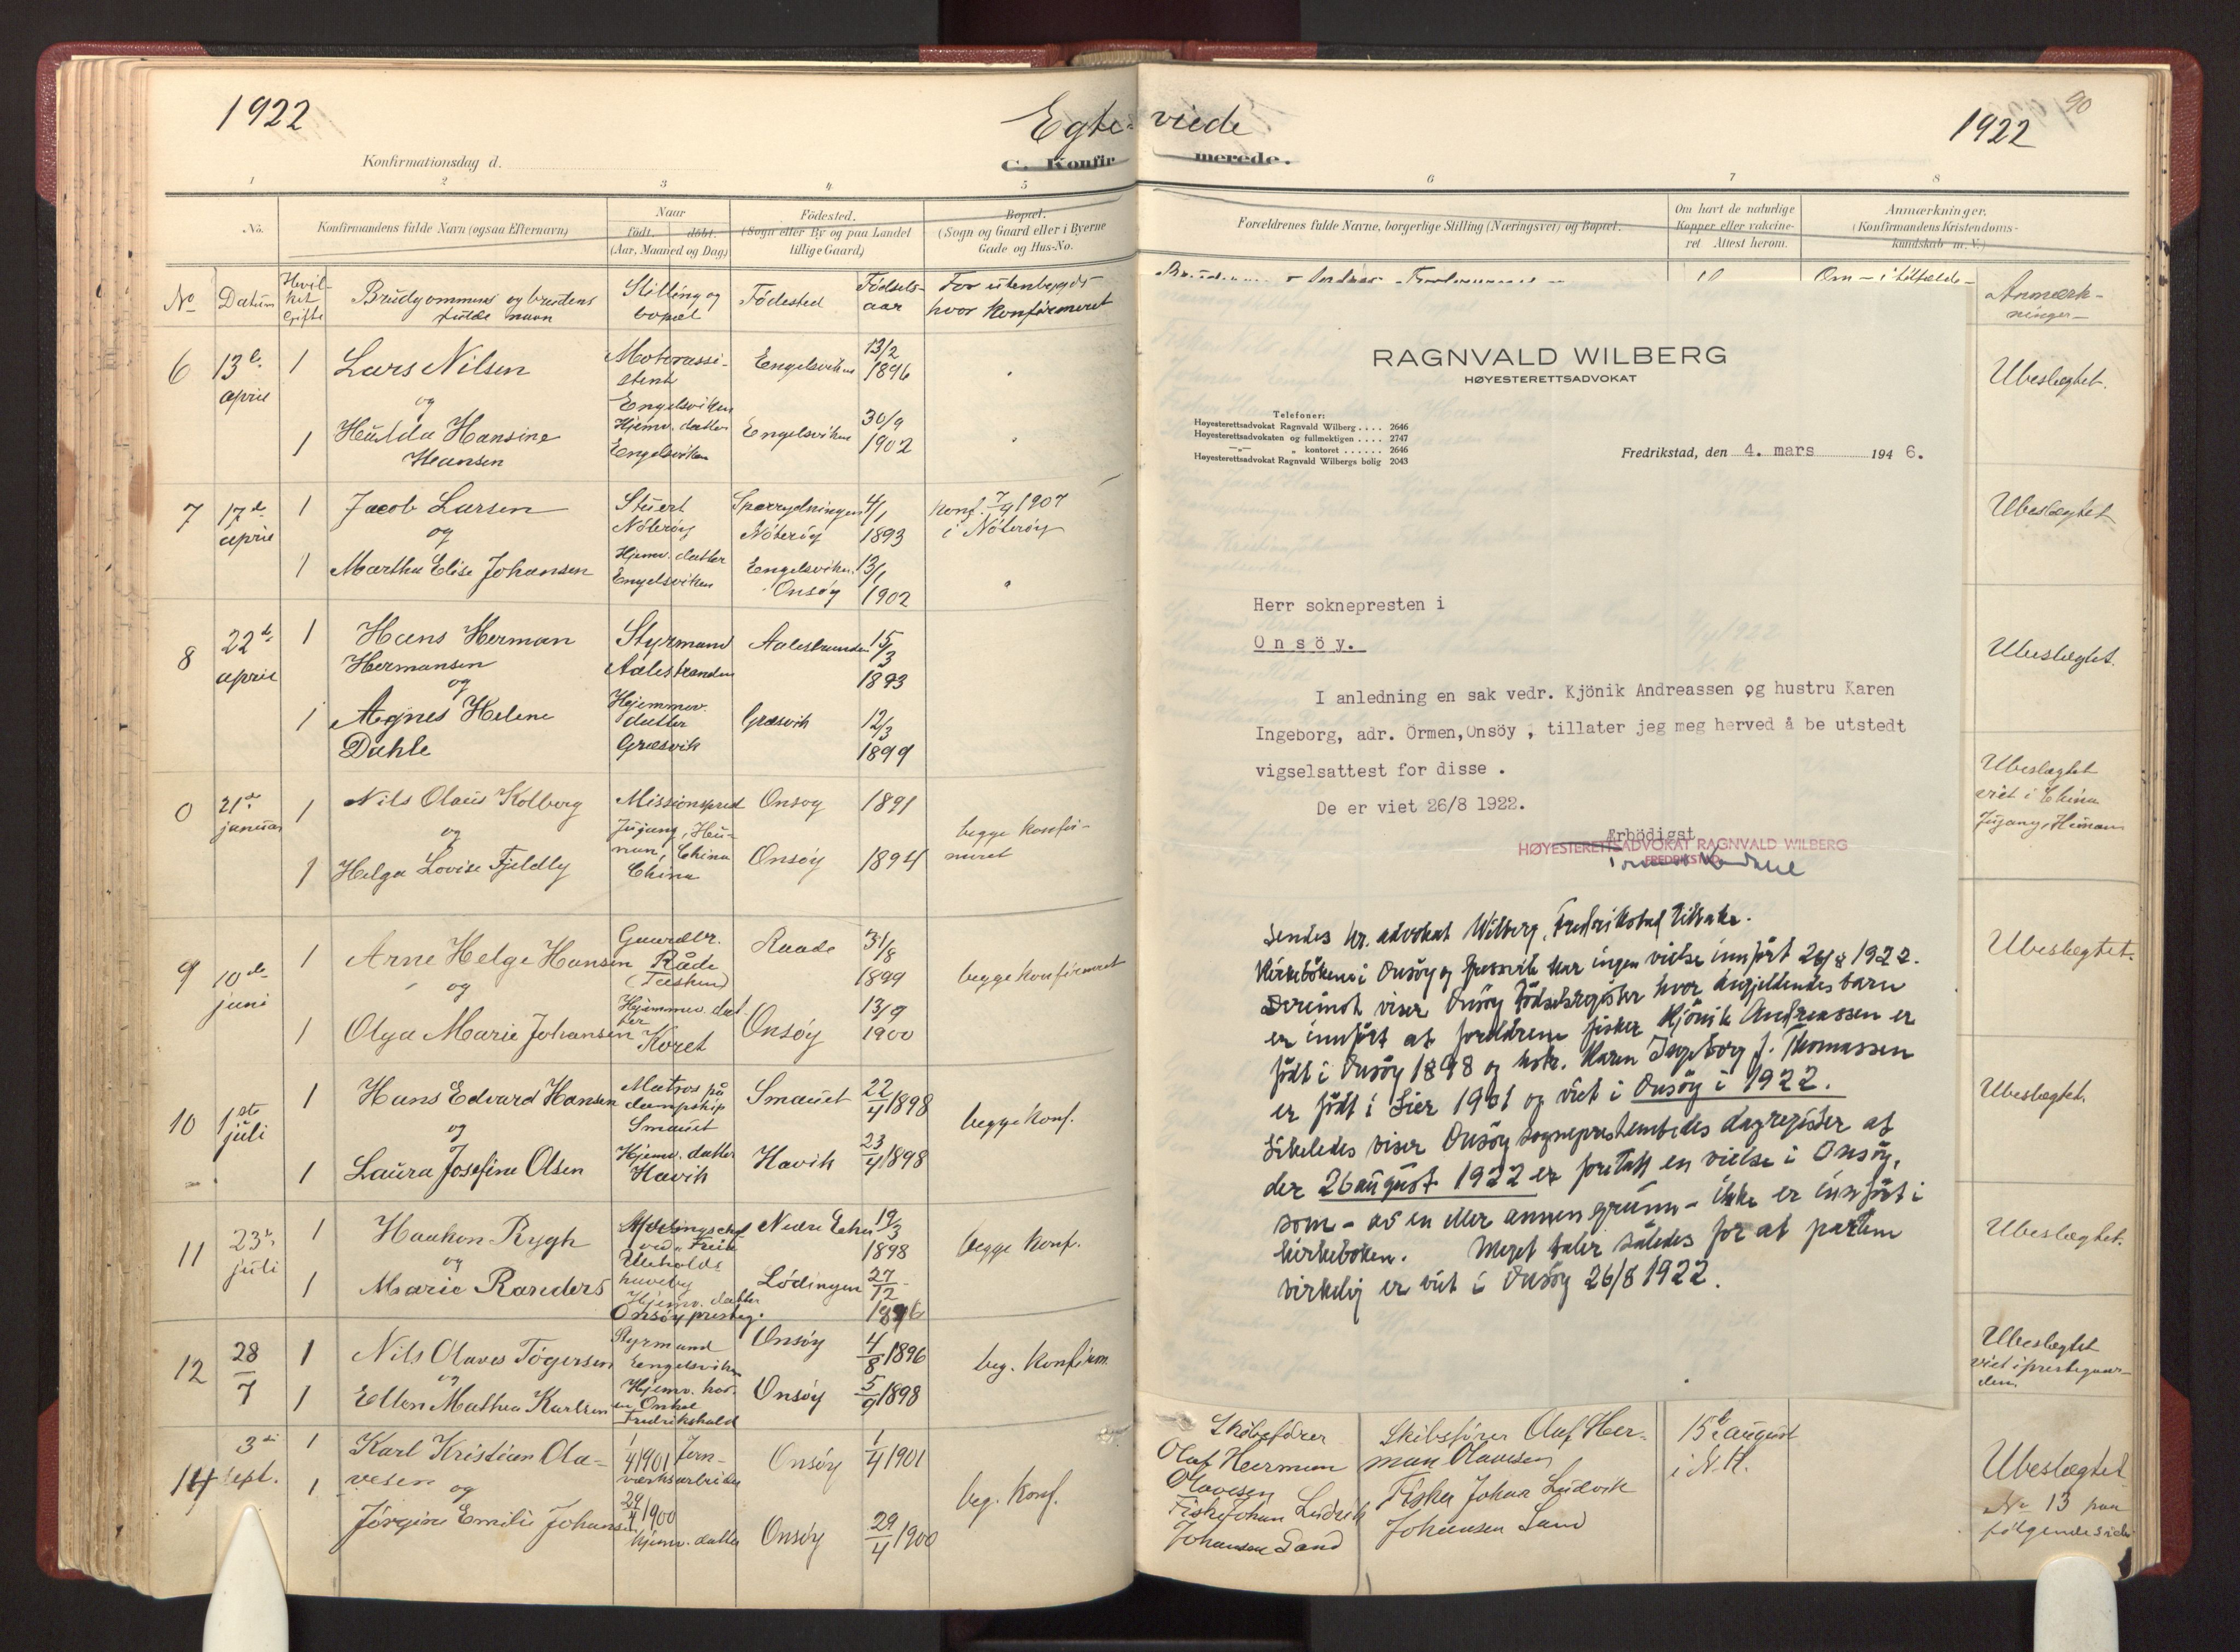 1922
Egte-viede
1922
90
Konfirmationsdag d.
C. Konfirmerede.
1 2 3 4 5 6 7 8
No.
Konfirmandens fulde Navn (ogsaa Efternavn)
Naar
født. døbt.
(Aar, Maaned og Dag)
Födested.
(Sogn eller By og paa Landet
tillige Gaard)
Bopæl.
(Sogn og Gaard eller i Byerne
Gade og Hus-No.
Forældrenes fulde Navne, borgerlige Stilling (Næringsvei) og Bopæl.
Om havt de naturlige
Kopper eller vakcine-
ret Attest herom.
Anmærkninger.
(Konfirmandens Kristendoms-
kundskab m. V.)
No
Datum
Hvil-
ket
Gifte
Brudgommens og brudens
fulde navn
Stilling og
bopæl
Födested
Födsels-
aar
For utenbygds
hvor konfirmeret
Anmærk-
ninger
6 13de april
1 Lars Nilsen
Motorassi-
stent
Engelsviken
Engelsviken
13/2
1896
og
1 Hulda Hansine
Hansen
Hjemv. datter
Engelsviken
Engelsviken
30/9
1902
Ubeslegtet.
7 17de april
1 Jacob Larsen
Stuert
Nöteröy
Nöteröy
4/1
1893
Konf. 7/9 1907
i Nöteröy
og
1 Martha Elise Johansen
Hjemv. datter
Engelsviken
Engelsviken
Onsöy
13/1
1902
Ubeslegtet
8 22de april
1 Hans Herman
Hermansen
Styrmand
Aalestranden
Aalestranden
15/3
1893
og
1 Agnes Helene
Dahle
Hjemmev.
datter
Græsvik
Græsvik
12/3
1899
Ubeslegtet.
0 21de januar
1 Nils Olaus Kolberg
Missionspred
Onsoy
1891
og
China
China
1 Helga Lovise Fjeldly
Onsöy
1894
begge konfir-
meret
Ubeslegtet
viet i China
9 10de juni
1 Arne Helge Hansen
Gaardbr.
Råde
Raade
31/8
1899
og
1 Olga Marie Johansen
Hjemmev. dat-
ter
Koret
Onsöy
13/9
1900
begge konfirmeret
Ubeslegtet.
10 1ste juli
1 Hans Edvard Hansen
Matros på
dampskip
Smauet
Smauet
22/4 1898
og
1 Laura Josefine Olsen
Hjemv. datter
Havik
Havik
23/4 1898
begge konf.
Ubeslegtet.
11 23de juli
1 Haakon Rygh
Nedre Eiker
19/3
1898
og
1 Marie Randers
Hjemv. datter
Onsöy presteg.
Lödingen
27/12
1896
begge konf.
Ubeslegtet.
12 28/7
1 Nils Olaves Tögersen
Styrmand
Engelsviken
Onsöy
4/8 1896
og
1 Ellen Mathea Karlsen
Hjemv. hos
en Onkel
Fredrikshald
Onsöy
5/9 1898
beg. Konfirm.
Ubeslegtet
viet i prestegaar-
den
14 3die sept.
1 Karl Kristian Ola-
vesen
1/4 1901 Jern-
verksarbeider
Onsöy
1/4 1901
og
1 Jörgine Emilie Johansen
29/4 1900
hjemv. datter
Onsöy
29/4 1900
beg. Konf.
Skibsförer
Olaf Herman
Olavesen
Fisker Johan Ludvik
Johansen Sand
Skibsförer Olaf Her-
man Olavesen
Fisker Johan Ludvik
Johansen Sand
15de august
i N.K.
Ubeslegtet
No 13 paa
fölgende side
RAGNVALD WILBERG
HØYESTERETTSADVOKAT
Telefoner:
Høyesterettsadvokat Ragnvald Wilberg .... 2646
Høyesterettsadvokaten og fullmektigen .... 2747
—„— „ kontoret ...... 2646
Høyesterettsadvokat Ragnvald Wilbergs bolig 2043
Fredrikstad, den 4. mars 194 6.
Herr soknepresten i
O n s ö y.
I anledning en sak vedr. Kjönik Andreassen og hustru Karen
Ingeborg, adr. Örmen,Onsöy , tillater jeg meg herved å be utstedt
vigselsattest for disse .
De er viet 26/8 1922.
Ærbödigst
HØYESTERETTSADVOKAT RAGNVALD WILBERG
FREDRIKSTAD
Sendes hr. advokat Wilberg, Fredrikstad tilbake.
Kirkebökene i Onsöy og Gressvik har ingen vielse innfört 26/8 1922.
Derimot viser Onsöy födselsregister hvor angjeldendes barn
er innfört at foreldrene fisker Kjönik Andreassen er
födt i Onsöy 1898 og hstr. Karen Ingeborg f. Thomassen
er födt i Lier 1901 og viet i Onsöy i 1922.
Likeledes viser Onsöy sogneprestembedes dagregister at
der 26 august 1922 er foretatt en vielse i Onsöy,
som - av en eller annen grunn - ikke er innfört i
kirkeboken. Meget taler således for at partene
virkelig er viet i Onsöy 26/8 1922.